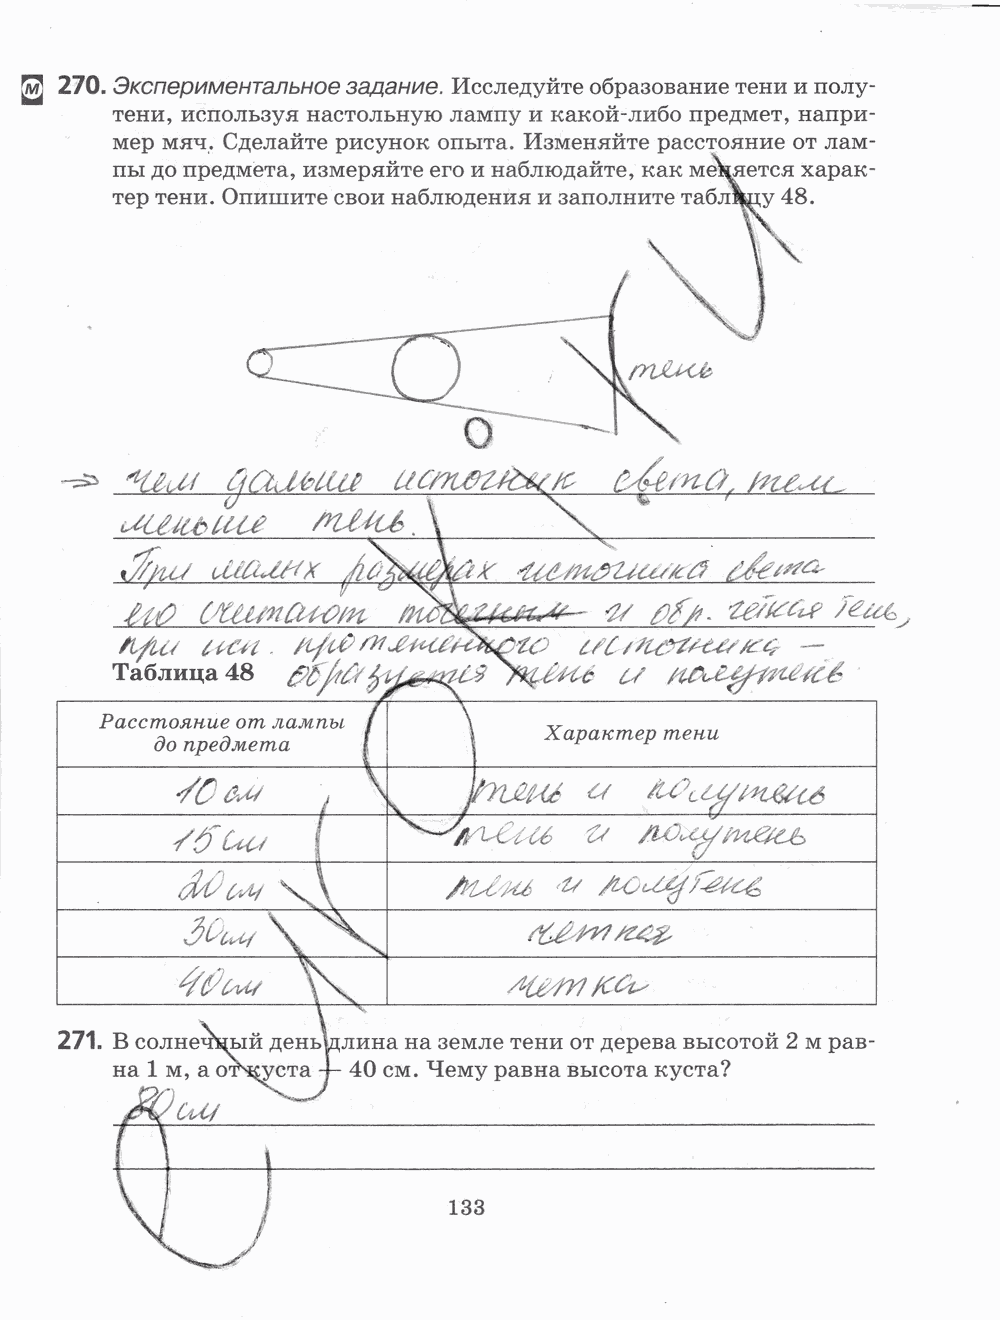 М 270. Экспериментальное задание. Исследуйте образование тени и полу-
тени, используя настольную лампу и какой-либо предмет, напри-
мер мяч. Сделайте рисунок опыта. Изменяйте расстояние от лам-
пы до предмета, измеряйте его и наблюдайте, как меняется харак-
тер тени. Опишите свои наблюдения и заполните таблицу 48.
тень
=> чем дальше источник света, тем
меньше тень.
При малых размерах источника света
его считают точечным и обр. четкая тень,
при исп. протяженного источника –
Таблица 48 образуется тень и полутень
Расстояние от лампы
до предмета
Характер тени
10 см тень и полутень
15 см тень и полутень
20 см тень и полутень
30 см четкая
40 см четка
271. В солнечный день длина на земле тени от дерева высотой 2 м рав-
на 1 м, а от куста — 40 см. Чему равна высота куста?
80 см
133